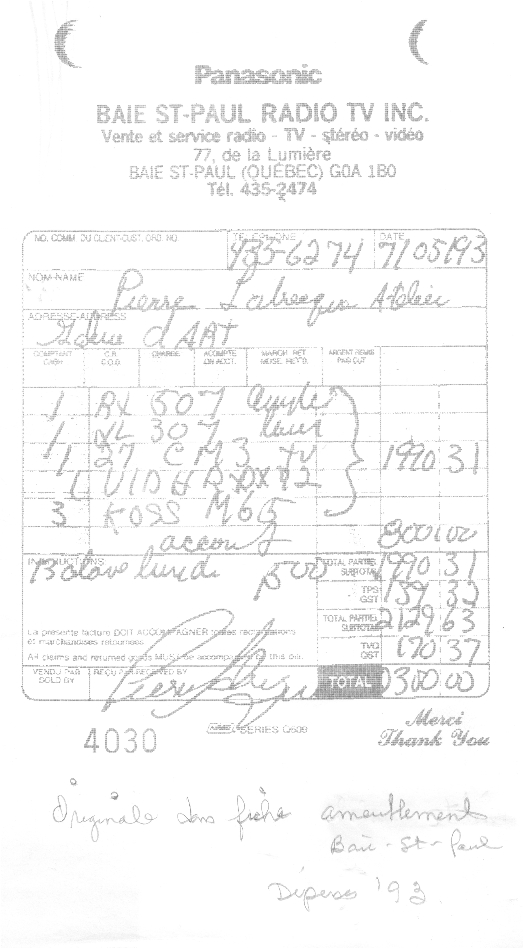 Panasonic
BAIE ST-PAUL RADIO TV INC.
Vente et service radio - TV - stéréo - vidéo
77, de la Lumière
BAIE ST-PAUL (QUÉBEC) G0A 1B0
Tél. 435-2474
NO. COMM. DU CLIENT-CUST. ORD. NO. TELEPHONE DATE
435-6274 7/05/93
NOM-NAME
Pierre Labrecque Atelier
ADRESSE-ADDRESS
d'ART
COMPTANT CASH C.R. C.O.D. CHARGE ACOMPTE ON ACCT. MARCH. RET. MDSE. RET'D. ARGENT REMIS PAID OUT
1 RX 507
1 XL 307
1 27 C M 3 TV 1990 31
1 VIDEO
3 KOSS M65
800 00
INSTRUCTIONS
500 TOTAL PARTIEL SUBTOTAL 1990 31
TPS GST 139 32
TOTAL PARTIEL SUBTOTAL 2129 63
La présente facture DOIT ACCOMPAGNER toutes réclamations et marchandises retournées.
TVQ QST 170 37
All claims and returned goods MUST be accompanied by this bill.
VENDU PAR SOLD BY REÇU PAR-RECEIVED BY TOTAL 300 00
SERIES
Merci
4030 Thank You
Originale dans fiche ameublement
Baie-St-Paul
Dépenses '93